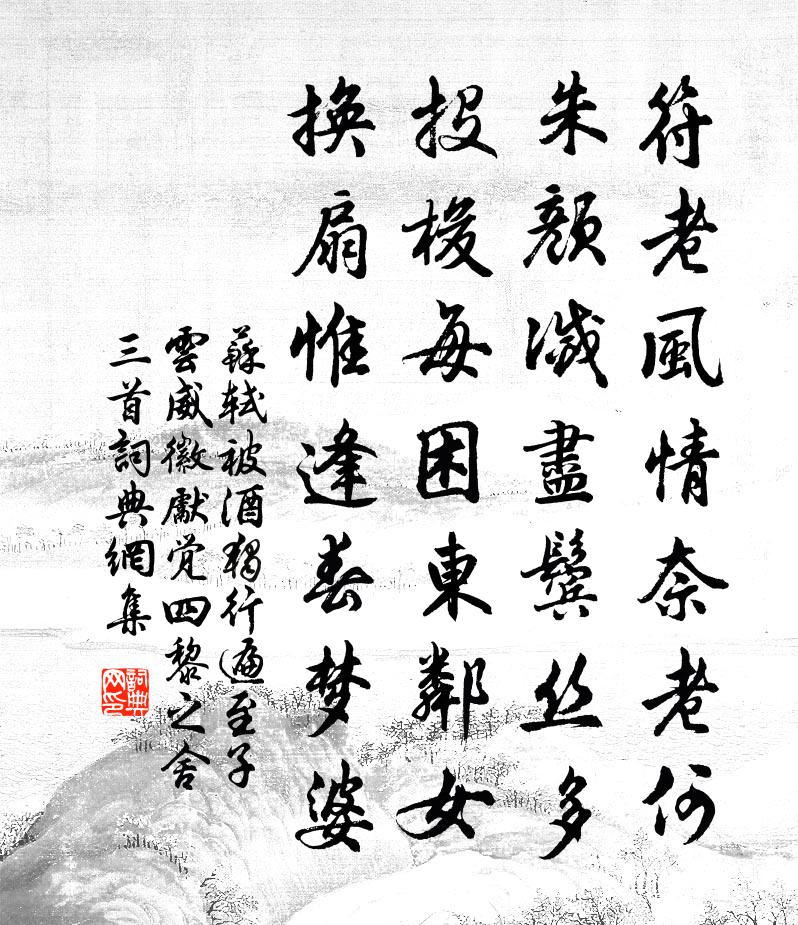 符老風情奈老何
朱顔減盡鬢丝多
投梭每困東鄰女
換扇惟逢春梦婆
蘇軾被酒獨行遍至子
雲威徽獻覚四黎之舍
三首詞典網集
詞典网印